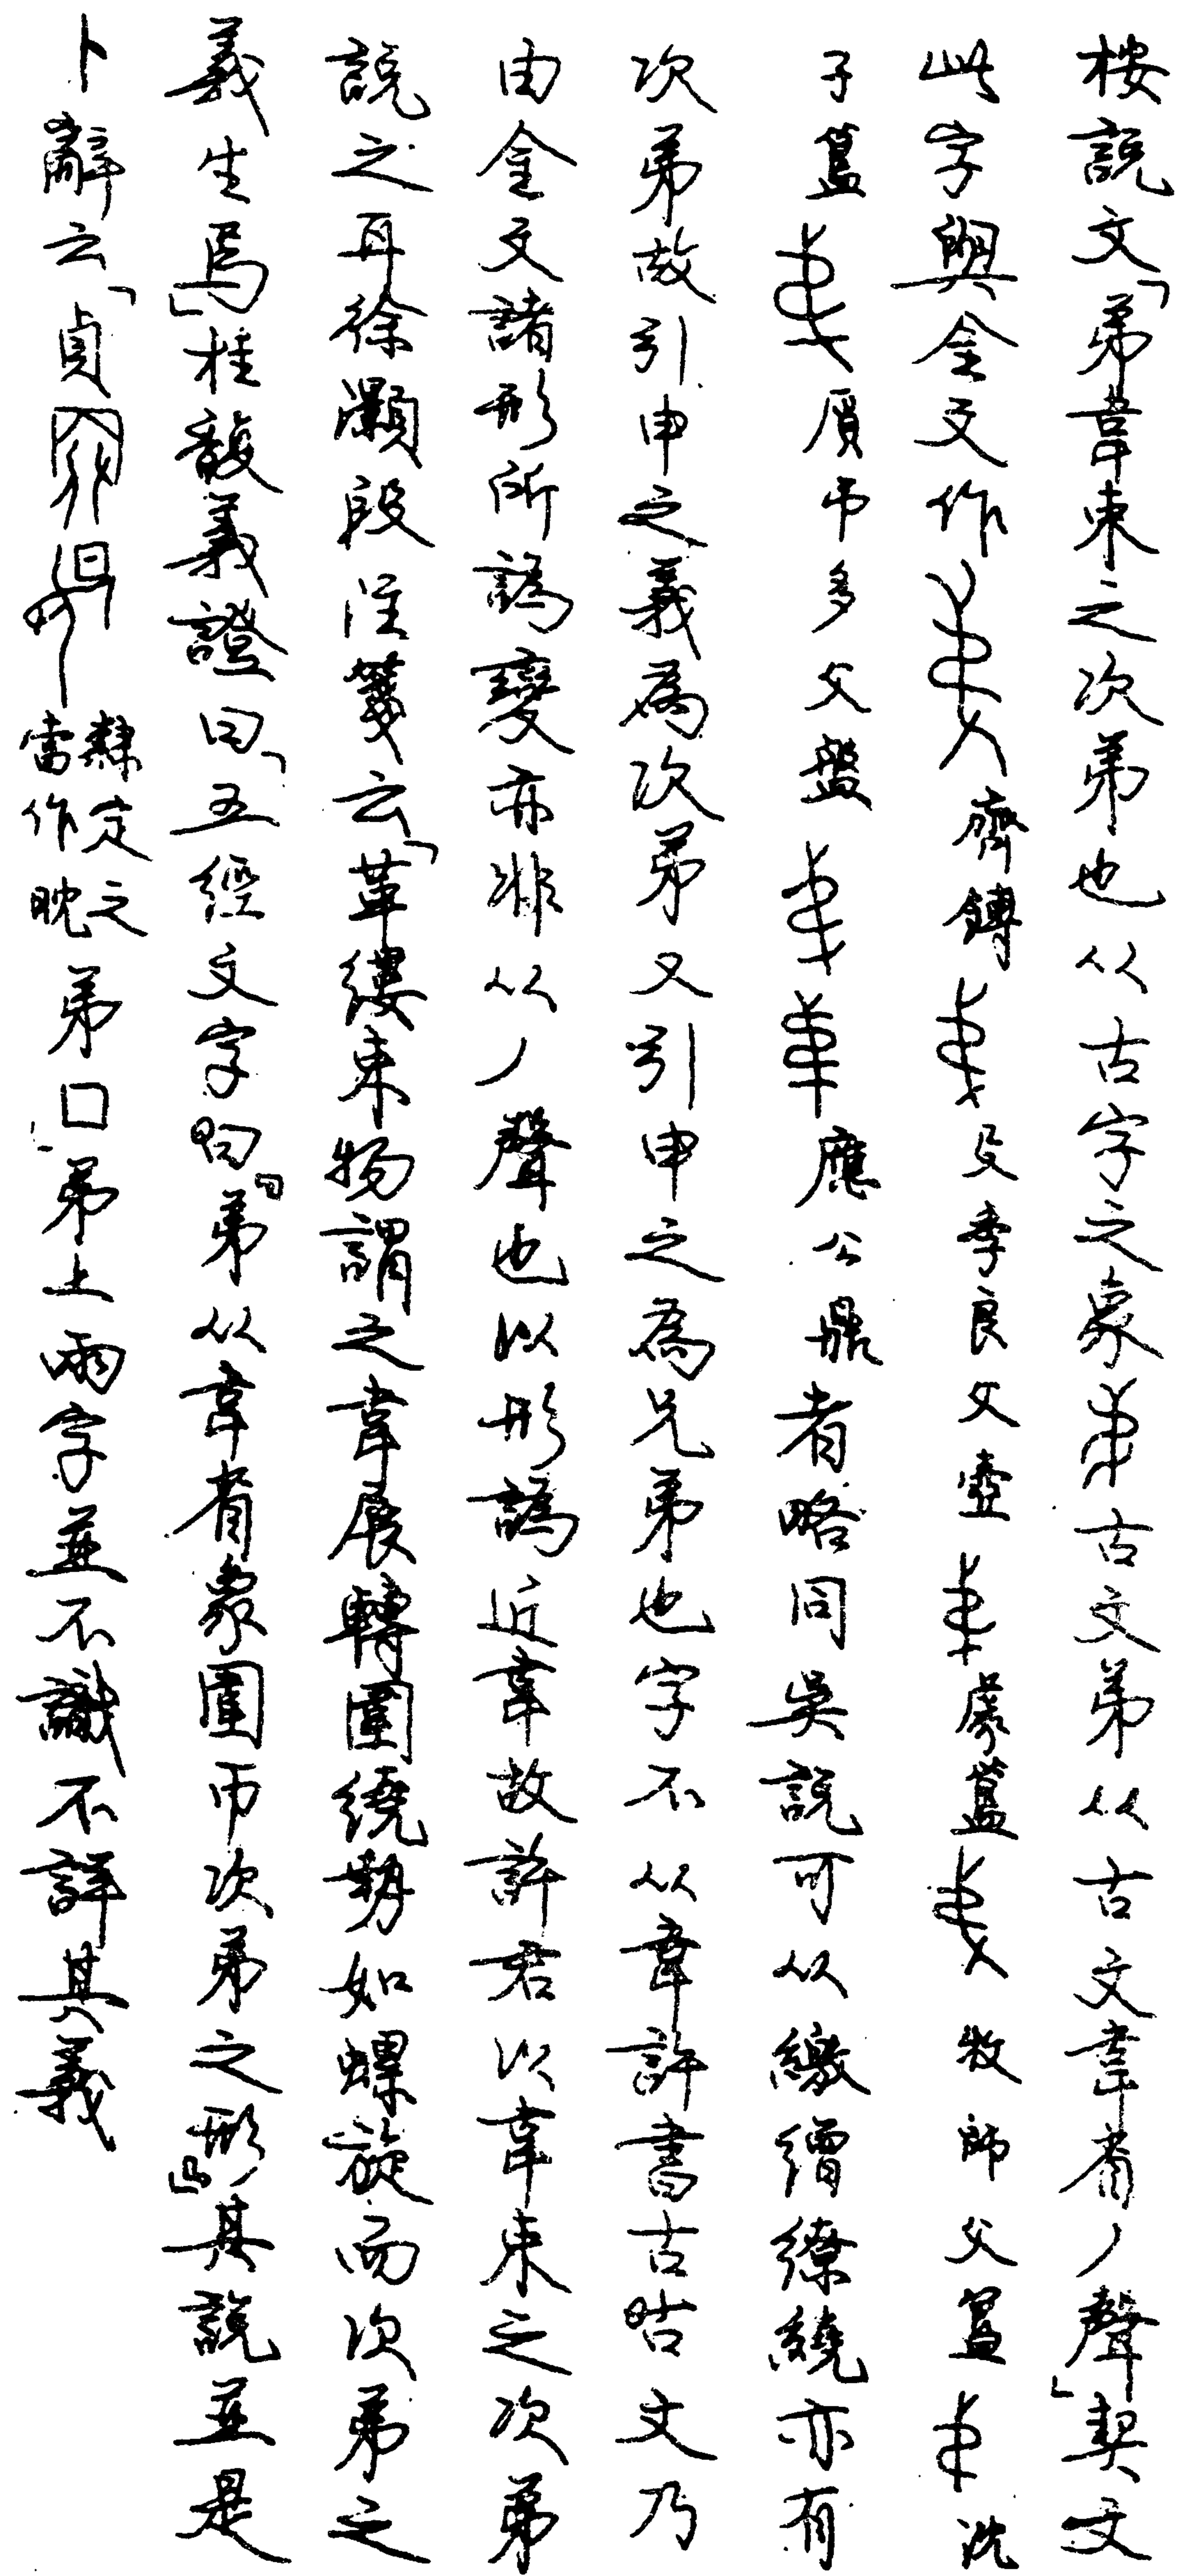 桉說文「弟韋束之次弟也从古字之象古文弟从古文韋省丿聲」契文
此字與金文作齊鎛及季良父壺簋牧師父簋沈
子簋弔多父盤應公鼎者略同吳說可从繳繒繚繞亦有
次弟故引申之義為次弟又引申之為兄弟也字不从韋許書古文乃
由金文諸形所譌變亦非从丿聲也以形譌近韋故許君以韋束之次弟
說之耳徐灝段注箋云「革縷束物謂之韋展轉圍繞勢如螺旋而次弟之
義生焉」桂馥義證曰「五經文字曰『弟从韋省象圍帀次弟之形』」其說並是
卜辭云「貞隸定之當作眈弟口」弟上兩字並不識不詳其義